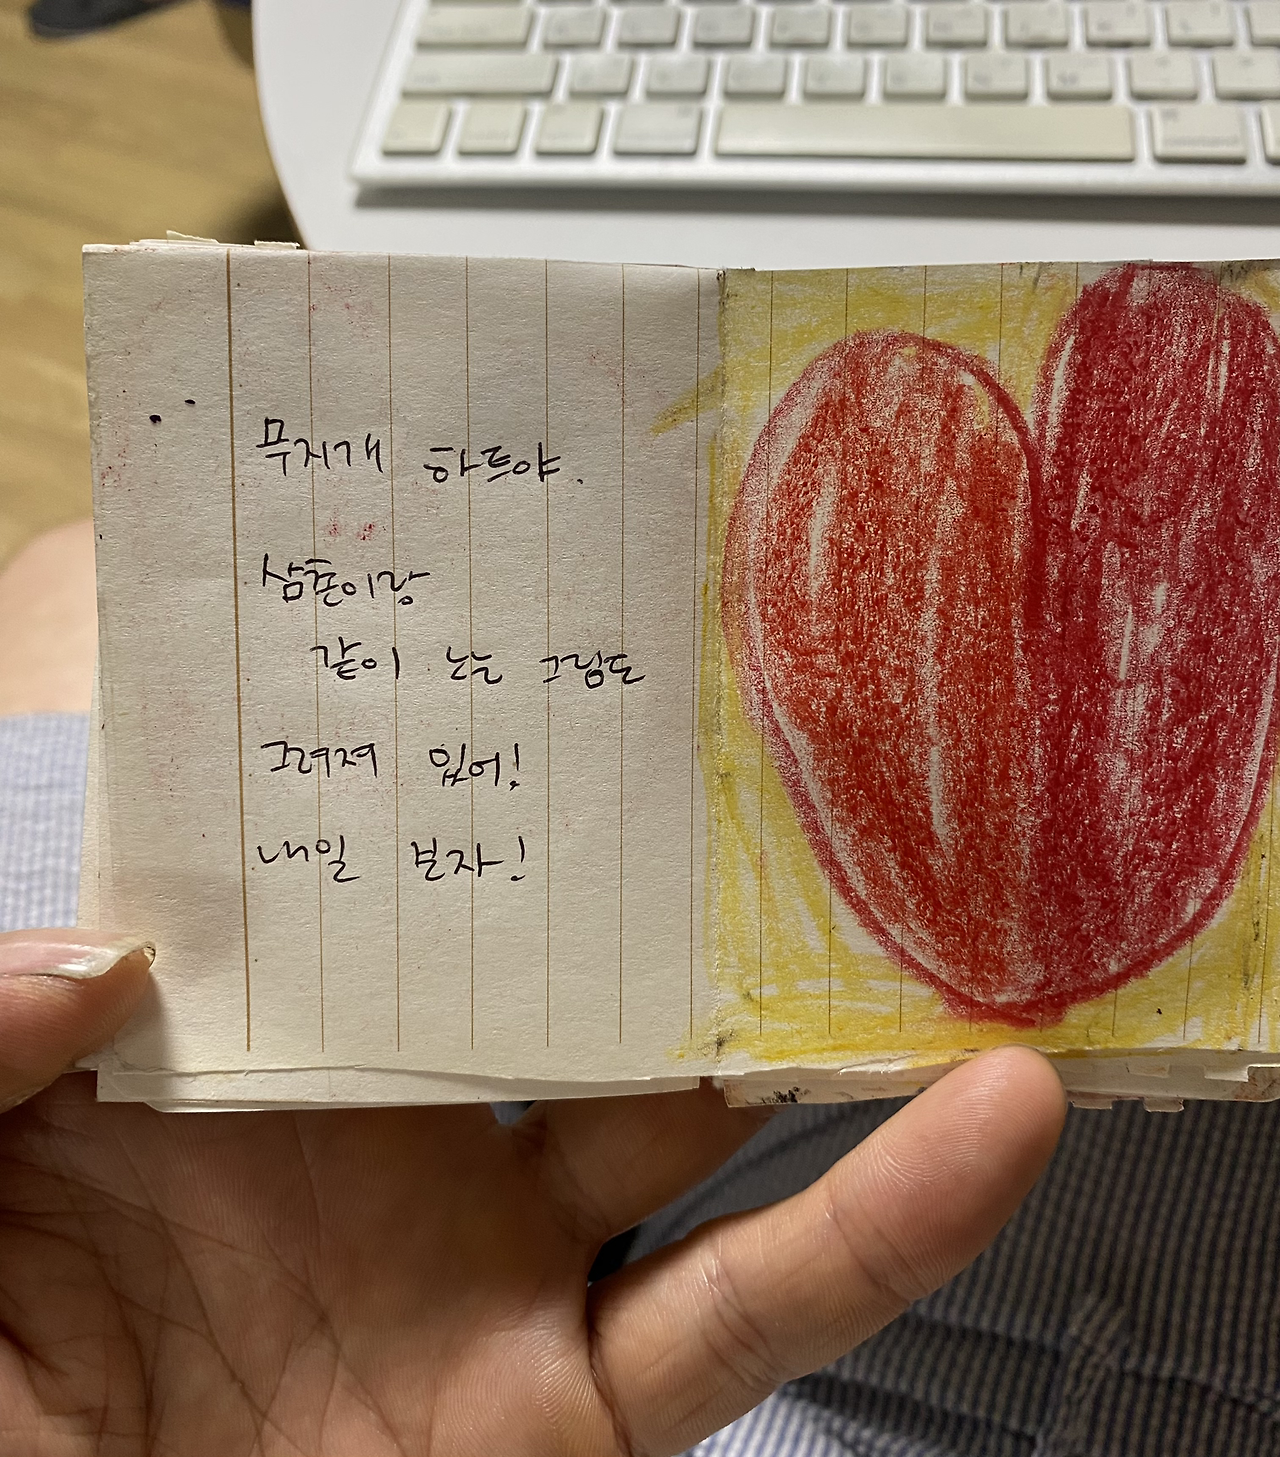 무지개 하트야.
삼촌이랑
같이 노는 그림도
그려져 있어!
내일 보자!